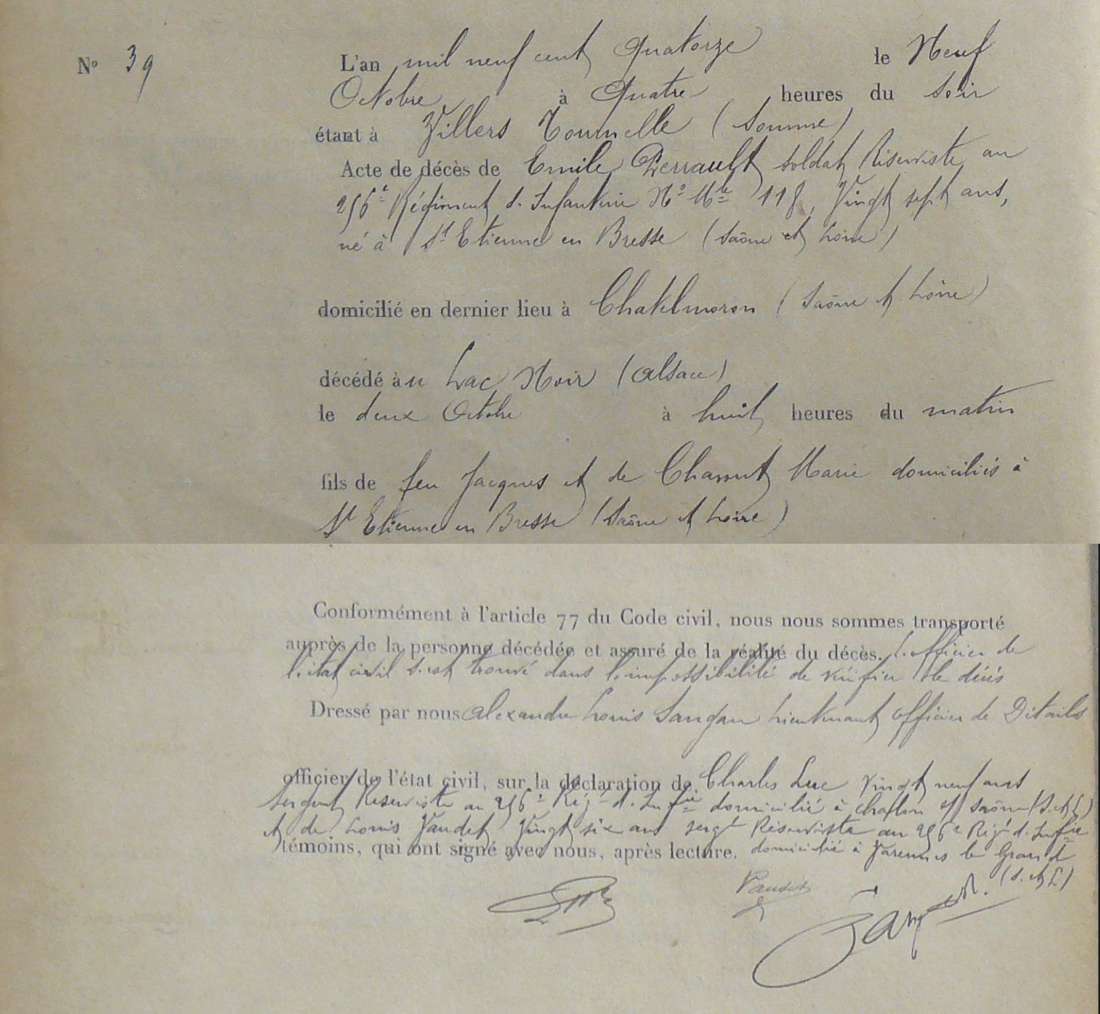 N° 39
L'an mil neuf cent quatorze le Neuf
Octobre à quatre heures du soir
étant à Villers Tournelle (Somme)
Acte de décès de Emile Perrault soldat Réserviste au
256e Régiment d'Infanterie N° Mle 118, Vingt sept ans,
né à St Etienne en Bresse (Saône et Loire)
domicilié en dernier lieu à Chatelmoron (Saône et Loire)
décédé au Lac Noir (Alsace)
le deux Octobre à huit heures du matin
fils de feu Jacques et de Marie domiciliés à
St Etienne en Bresse (Saône et Loire)
Conformément à l'article 77 du Code civil, nous nous sommes transporté
auprès de la personne décédée et assuré de la réalité du décès. L'officier de
l'état civil s'est trouvé dans l'impossibilité de vérifier le décès
Dressé par nous Alexandre Louis Lieutenant officier de Détails
officier de l'état civil, sur la déclaration de Charles Luc vingt neuf ans
sergent Réserviste au 256e Régt d'Infie domicilié à Chalon s/ Saône (S. et L)
et de Louis Vaudet Vingt six ans sergt Réserviste au 256e Régt d'Infie
témoins, qui ont signé avec nous, après lecture. domicilié à Varennes le Grand
(S. et L)
Vaudet